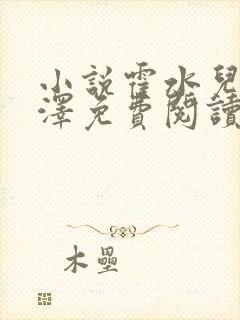 小說霍水兒
澤免費閱讀
木壘